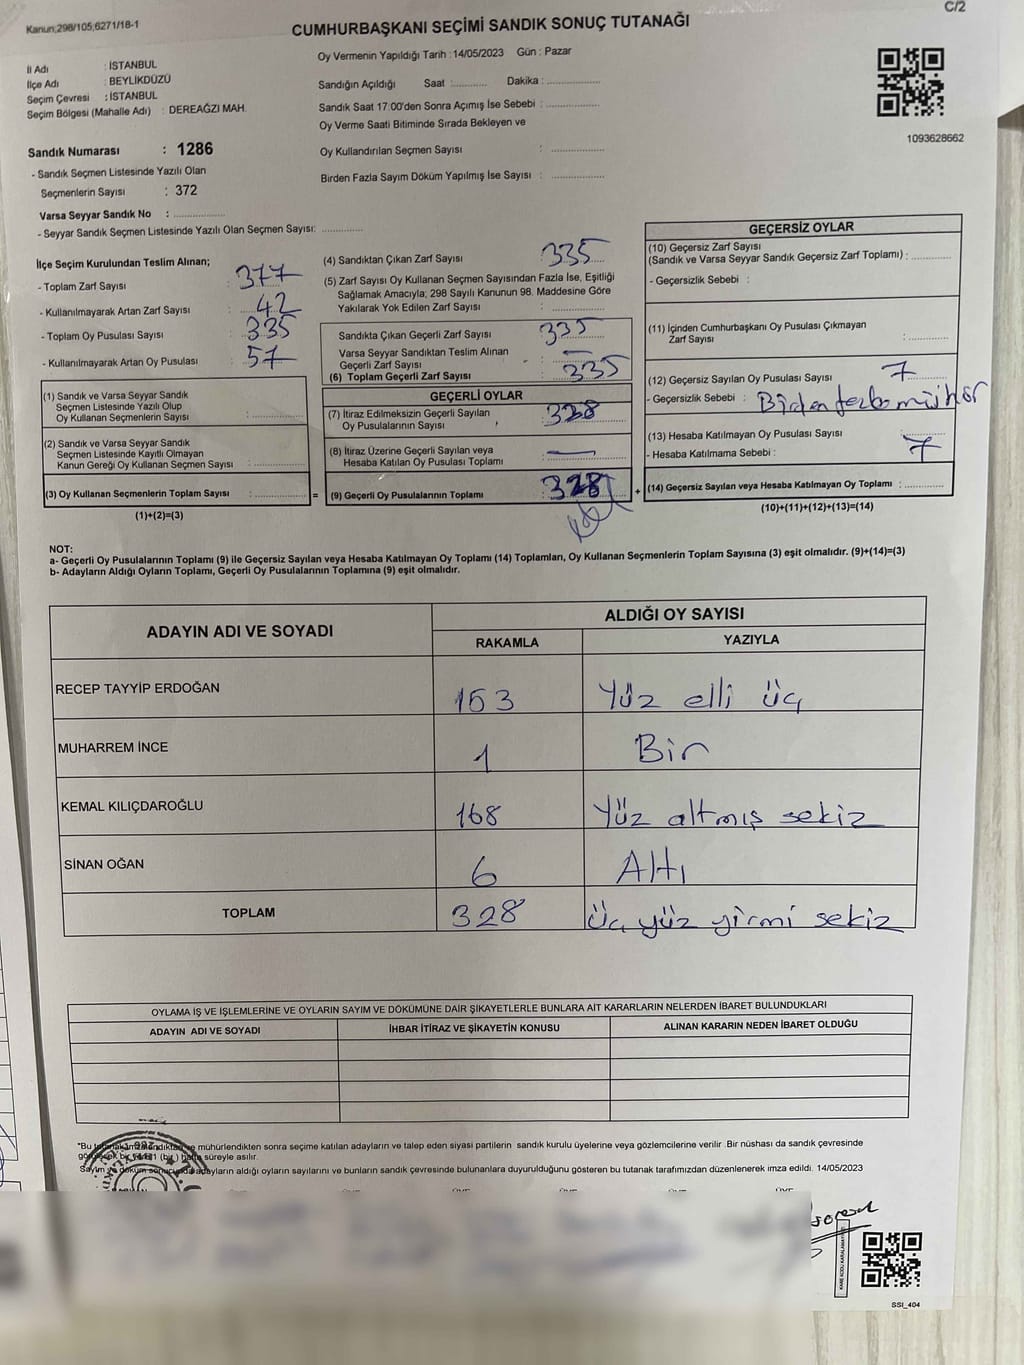 Kanun;298/105;6271/18-1
C/2
CUMHURBAŞKANI SEÇİMİ SANDIK SONUÇ TUTANAĞI
Oy Vermenin Yapıldığı Tarih : 14/05/2023 Gün : Pazar
İl Adı : İSTANBUL
İlçe Adı : BEYLİKDÜZÜ
Seçim Çevresi : İSTANBUL
Seçim Bölgesi (Mahalle Adı) : DEREAĞZI MAH.
Sandığın Açıldığı Saat :............ Dakika :..................
Sandık Saat 17:00'den Sonra Açımış İse Sebebi :..................
Oy Verme Saati Bitiminde Sırada Bekleyen ve
Oy Kullandırılan Seçmen Sayısı : ..................
Birden Fazla Sayım Döküm Yapılmış İse Sayısı : ..................
1093628662
Sandık Numarası : 1286
- Sandık Seçmen Listesinde Yazılı Olan
Seçmenlerin Sayısı : 372
Varsa Seyyar Sandık No : ..................
- Seyyar Sandık Seçmen Listesinde Yazılı Olan Seçmen Sayısı: ..............
İlçe Seçim Kurulundan Teslim Alınan;
- Toplam Zarf Sayısı : 377
- Kullanılmayarak Artan Zarf Sayısı : 42
- Toplam Oy Pusulası Sayısı : 335
- Kullanılmayarak Artan Oy Pusulası : 57
(1) Sandık ve Varsa Seyyar Sandık
Seçmen Listesinde Yazılı Olup
Oy Kullanan Seçmenlerin Sayısı :..................
(2) Sandık ve Varsa Seyyar Sandık
Seçmen Listesinde Kayıtlı Olmayan
Kanun Gereği Oy Kullanan Seçmen Sayısı :..................
(3) Oy Kullanan Seçmenlerin Toplam Sayısı :.................. =
(1)+(2)=(3)
(4) Sandıktan Çıkan Zarf Sayısı : 335
(5) Zarf Sayısı Oy Kullanan Seçmen Sayısından Fazla İse, Eşitliği
Sağlamak Amacıyla; 298 Sayılı Kanunun 98. Maddesine Göre
Yakılarak Yok Edilen Zarf Sayısı :..................
Sandıkta Çıkan Geçerli Zarf Sayısı : 335
Varsa Seyyar Sandıktan Teslim Alınan
Geçerli Zarf Sayısı : —
(6) Toplam Geçerli Zarf Sayısı : 335
GEÇERLİ OYLAR
(7) İtiraz Edilmeksizin Geçerli Sayılan
Oy Pusulalarının Sayısı : 328
(8) İtiraz Üzerine Geçerli Sayılan veya
Hesaba Katılan Oy Pusulası Toplamı : —
(9) Geçerli Oy Pusulalarının Toplamı : 328 +
GEÇERSİZ OYLAR
(10) Geçersiz Zarf Sayısı
(Sandık ve Varsa Seyyar Sandık Geçersiz Zarf Toplamı) :............
- Geçersizlik Sebebi :
(11) İçinden Cumhurbaşkanı Oy Pusulası Çıkmayan
Zarf Sayısı :............
(12) Geçersiz Sayılan Oy Pusulası Sayısı : 7
- Geçersizlik Sebebi : Birden fazla mühür
(13) Hesaba Katılmayan Oy Pusulası Sayısı :............
- Hesaba Katılmama Sebebi : 7
(14) Geçersiz Sayılan veya Hesaba Katılmayan Oy Toplamı :............
(10)+(11)+(12)+(13)=(14)
NOT:
a- Geçerli Oy Pusulalarının Toplamı (9) ile Geçersiz Sayılan veya Hesaba Katılmayan Oy Toplamı (14) Toplamları, Oy Kullanan Seçmenlerin Toplam Sayısına (3) eşit olmalıdır. (9)+(14)=(3)
b- Adayların Aldığı Oyların Toplamı, Geçerli Oy Pusulalarının Toplamına (9) eşit olmalıdır.
ADAYIN ADI VE SOYADI
ALDIĞI OY SAYISI
RAKAMLA YAZIYLA
RECEP TAYYİP ERDOĞAN 153 Yüz elli üç
MUHARREM İNCE 1 Bir
KEMAL KILIÇDAROĞLU 168 Yüz altmış sekiz
SİNAN OĞAN 6 Altı
TOPLAM 328 Üç yüz yirmi sekiz
OYLAMA İŞ VE İŞLEMLERİNE VE OYLARIN SAYIM VE DÖKÜMÜNE DAİR ŞİKAYETLERLE BUNLARA AİT KARARLARIN NELERDEN İBARET BULUNDUKLARI
ADAYIN ADI VE SOYADI İHBAR İTİRAZ VE ŞİKAYETİN KONUSU ALINAN KARARIN NEDEN İBARET OLDUĞU
*Bu mühürlendikten sonra seçime katılan adayların ve talep eden siyasi partilerin sandık kurulu üyelerine veya gözlemcilerine verilir .Bir nüshası da sandık çevresinde
süreyle asılır.
adayların aldığı oyların sayılarını ve bunların sandık çevresinde bulunanlara duyurulduğunu gösteren bu tutanak tarafımızdan düzenlenerek imza edildi. 14/05/2023
SSI_404